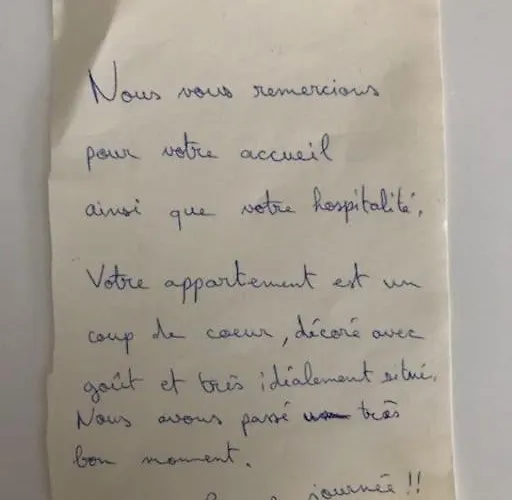 Nous vous remercions
pour votre accueil
ainsi que votre hospitalité.
Votre appartement est un
coup de coeur, décoré avec
goût et très idéalement situé.
Nous avons passé un très
bon moment.
journée !!